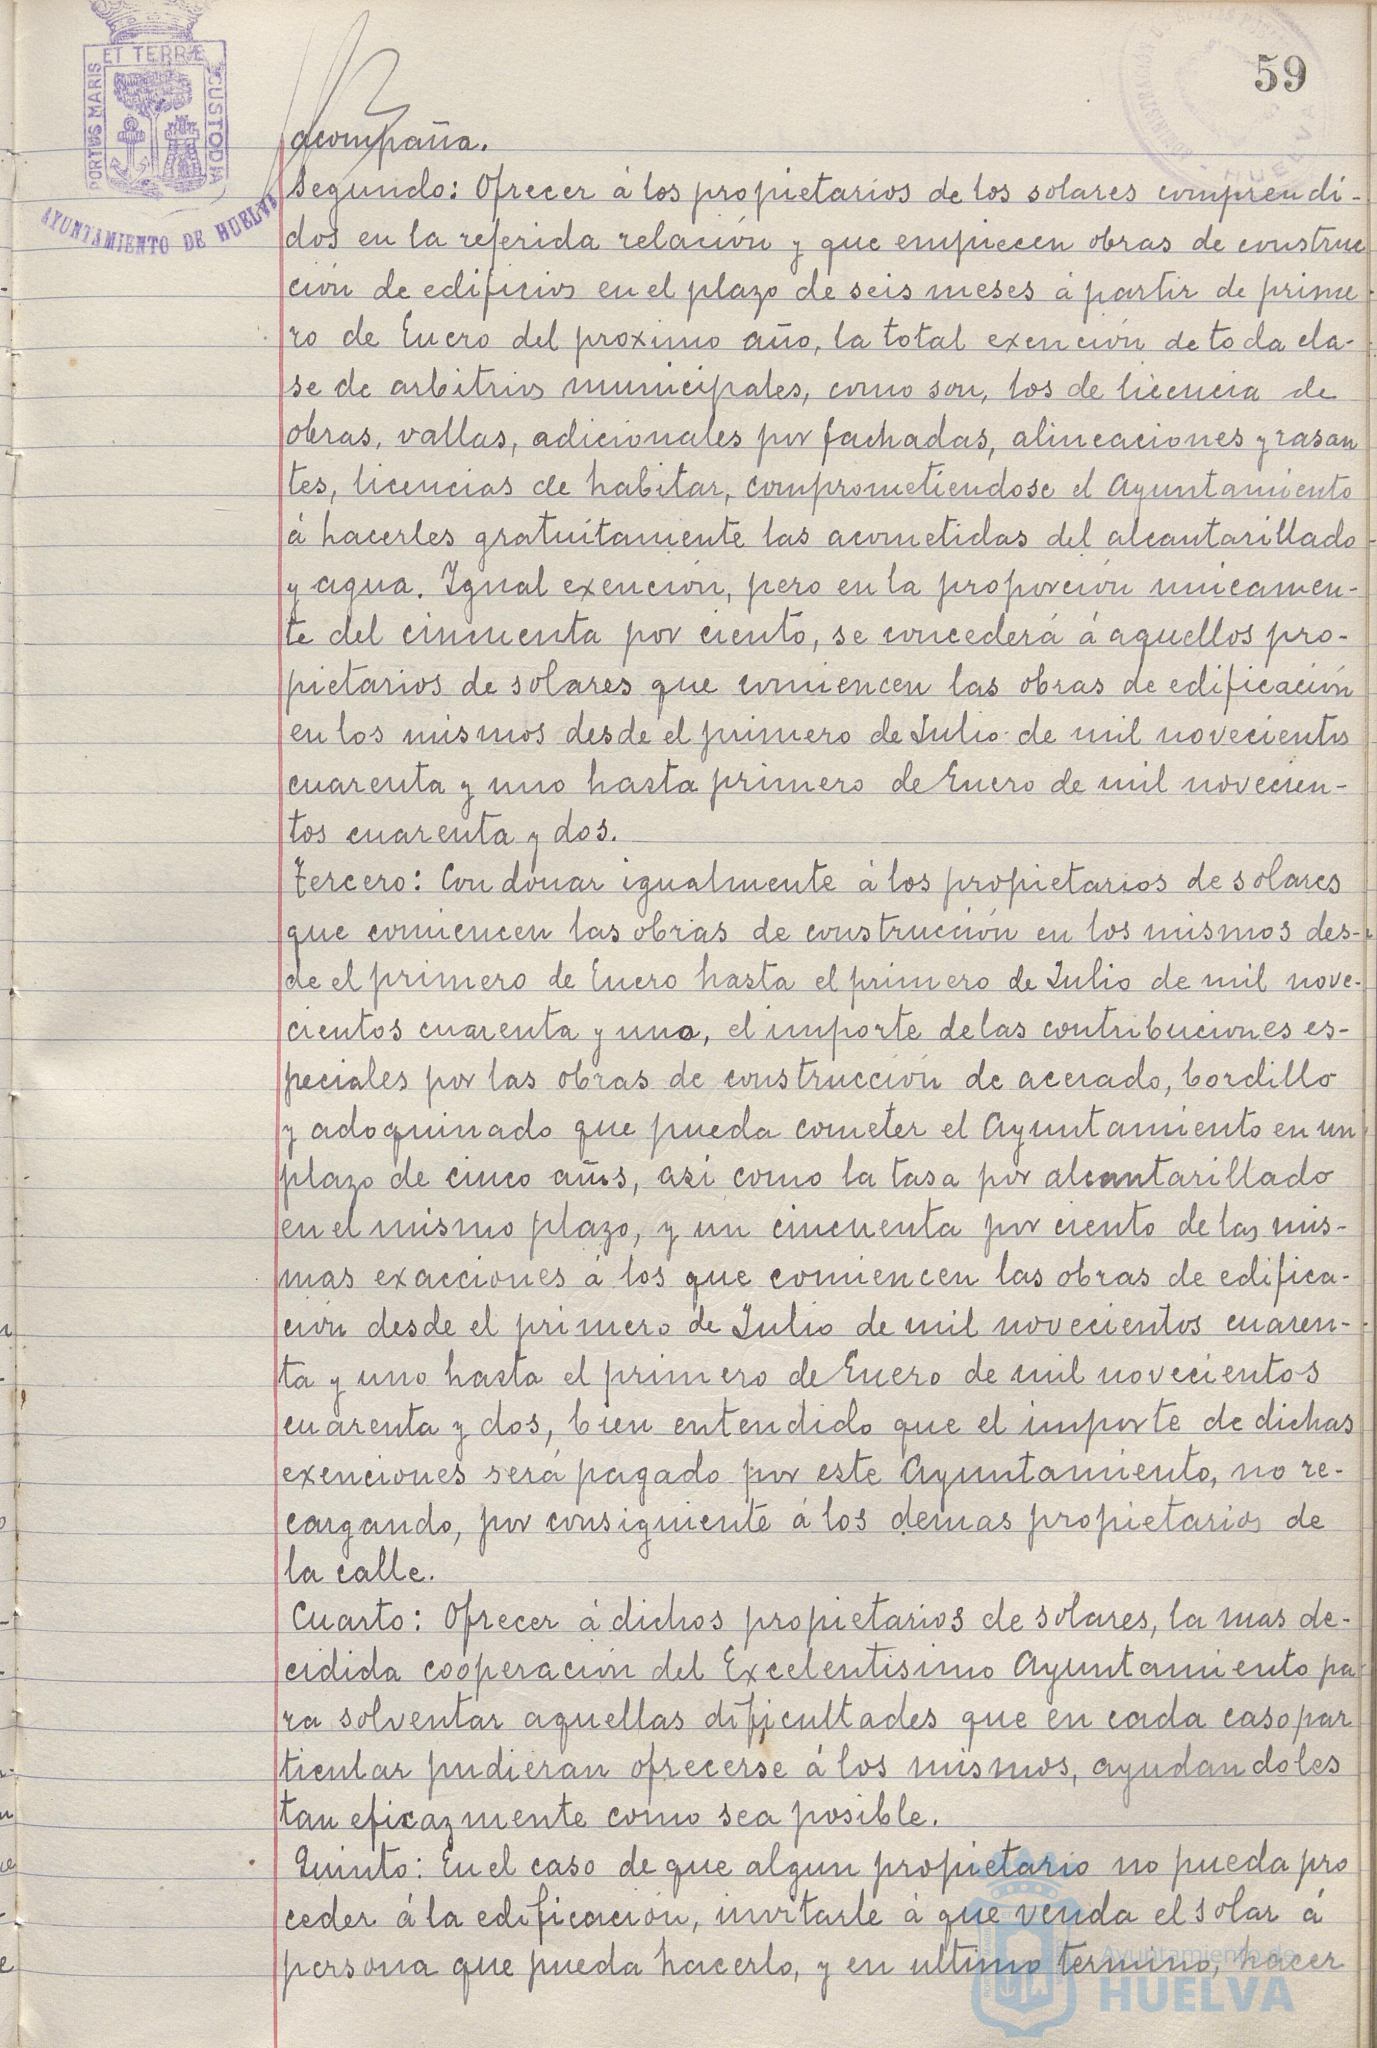 59
PORTUS MARIS ET TERRÆ CUSTODIA
AYUNTAMIENTO DE HUELVA
HUELVA
acompaña.
Segundo: Ofrecer á los propietarios de los solares comprendi-
dos en la referida relación y que empiecen obras de construc
ción de edificios en el plazo de seis meses á partir de prime-
ro de Enero del proximo año, la total exención de toda cla-
se de arbitrios municipales, como son, los de licencia de
obras, vallas, adicionales por fachadas, alineaciones y rasan
tes, licencias de habitar, comprometiendose el Ayuntamiento
á hacerles gratuitamente las acometidas del alcantarillado
y agua. Igual exención, pero en la proporción unicamen-
te del cincuenta por ciento, se concederá á aquellos pro-
pietarios de solares que comiencen las obras de edificación
en los mismos desde el primero de Julio de mil novecientos
cuarenta y uno hasta primero de Enero de mil novecien-
tos cuarenta y dos.
Tercero: Condonar igualmente á los propietarios de solares
que comiencen las obras de construcción en los mismos des-
de el primero de Enero hasta el primero de Julio de mil nove-
cientos cuarenta y uno, el importe de las contribuciones es-
peciales por las obras de construcción de acerado, bordillo
y adoquinado que pueda cometer el Ayuntamiento en un
plazo de cinco años, asi como la tasa por alcantarillado
en el mismo plazo, y un cincuenta por ciento de las mis-
mas exacciones á los que comiencen las obras de edifica-
ción desde el primero de Julio de mil novecientos cuaren-
ta y uno hasta el primero de Enero de mil novecientos
cuarenta y dos, bien entendido que el importe de dichas
exenciones será pagado por este Ayuntamiento, no re-
cargando, por consiguiente á los demas propietarios de
la calle.
Cuarto: Ofrecer á dichos propietarios de solares, la mas de-
cidida cooperación del Excelentisimo Ayuntamiento pa-
ra solventar aquellas dificultades que en cada caso par
ticular pudieran ofrecerse á los mismos, ayudandoles
tan eficazmente como sea posible.
Quinto: En el caso de que algun propietario no pueda pro
ceder á la edificación, invitarle á que venda el solar á
persona que pueda hacerlo, y en ultimo termino, hacer
Ayuntamiento de
HUELVA